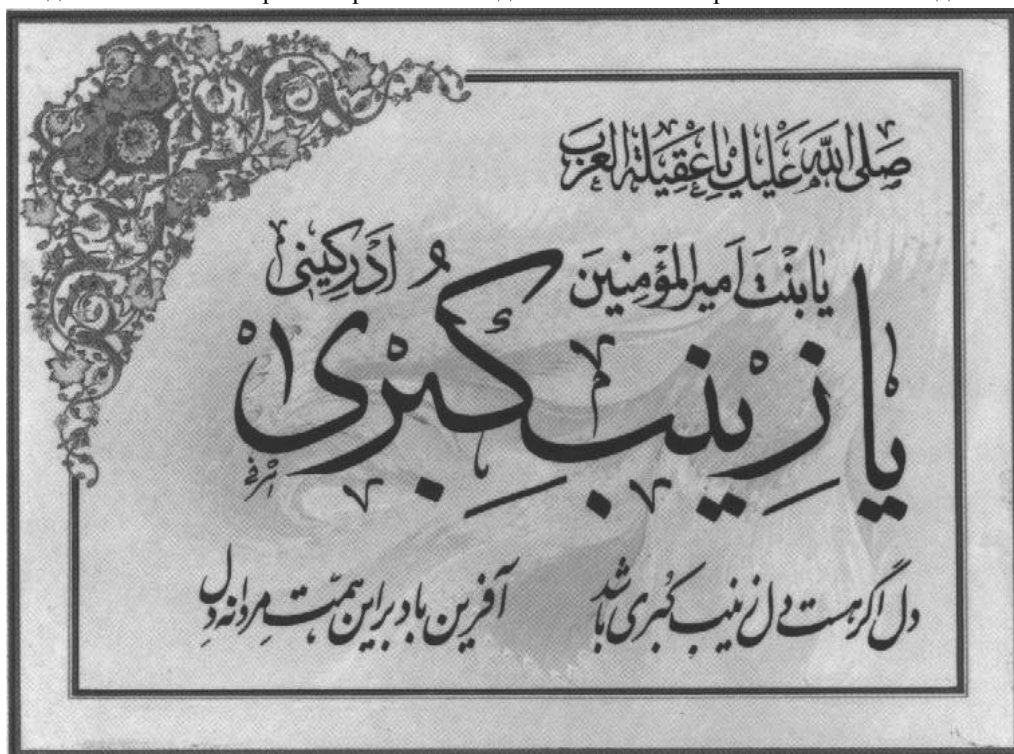 صَلَّى اللّٰهُ عَلَيْكِ يٰا عَقِيلَةَ الْعَرَبِ
يٰا بِنْتَ اَميرِ الْمُؤْمِنِينَ اَدْرِكِينِي
يا زِينبِ كُبْرىٰ
دل اگر هست دل زینب کُبری باشد
آفرین باد بر این همّت مردانهٔ دل